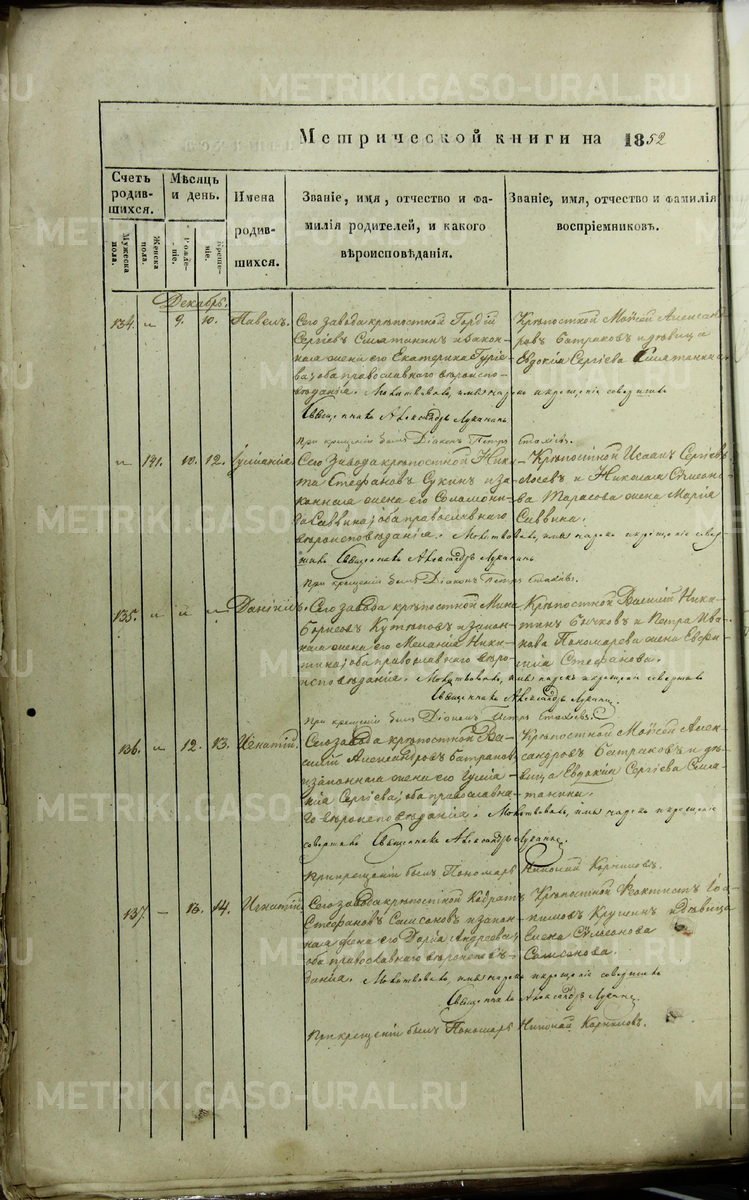 METRIKI.GASO-URAL.RU
Метрической книги на 1852
Счетъ родив-шихся.
Мѣсяцъ и день.
Имена родив-шихся.
Званіе, имя, отчество и фа-
милія родителей, и какого
вѣроисповѣданія.
Званіе, имя, отчество и фамилія
воспріемниковъ.
Мужеска пола.
Женска пола.
Рожде-ніе.
Креще-ніе.
Декабрь.
134. " 9. 10. Павелъ.
Сего завода крѣпостной Гордій
Сергіевъ и закон-
ная жена его Екатерина Гуріе-
ва; оба православнаго вѣроиспо-
вѣданія. Молитвовалъ, имя нарекъ и крещеніе совершилъ
Священникъ Александръ Луканинъ
При крещеніи былъ Діаконъ Петръ
Крѣпостной Моѵсей Александ-
ровъ Батраковъ и дѣвица
Евдокія Сергіева
" 141. 10. 12. Іуліанія.
Сего завода крѣпостной Ники-
та Стефановъ Сукинъ и за-
конная жена его Соломони-
я Саввина; оба православнаго
вѣроисповѣданія. Молитвовалъ, имя нарекъ и крещеніе совер-
шилъ Священникъ Александръ Луканинъ
При крещеніи былъ Діаконъ Петръ
Крѣпостной Исаакъ Сергіевъ
Лосевъ и Николая Сѵмеоно-
ва Тарасова жена Марія
Саввина.
135. " " " Даніилъ.
Сего завода крѣпостной Мина
Борисовъ и закон-
ная жена его Меланія Ники-
тина; оба православнаго вѣро-
исповѣданія. Молитвовалъ, имя нарекъ и крещеніе совершилъ
Священникъ Александръ Луканинъ
При крещеніи былъ Діаконъ Петръ
Крѣпостной Василій Ники-
тинъ Бычковъ и Петра Ива-
нова Пономарева жена Евфи-
мія Стефанова.
136. " 12. 13. Игнатій.
Сего завода крѣпостной Ва-
силій Александровъ Батраковъ
и законная жена его Іуліа-
нія Сергіева; оба православна-
го вѣроисповѣданія. Молитвовалъ, имя нарекъ и крещеніе
совершилъ Священникъ Александръ Луканинъ.
При крещеніи былъ Пономарь Николай Корниловъ.
Крѣпостной Моѵсей Алек-
сандровъ Батраковъ и дѣ-
вица Евдокія Сергіева
137. — 13. 14. Игнатій.
Сего завода крѣпостной Кодратъ
Стефановъ Самсоновъ и закон-
ная жена его Дарья Андреева;
оба православнаго вѣроисповѣ-
данія. Молитвовалъ, имя нарекъ и крещеніе совершилъ
Священникъ Александръ Луканинъ
При крещеніи былъ Пономарь Николай Корниловъ.
Крѣпостной Ѳеоктистъ Іоа-
кимовъ и дѣвица
Елена Сѵмеонова
Самсонова.